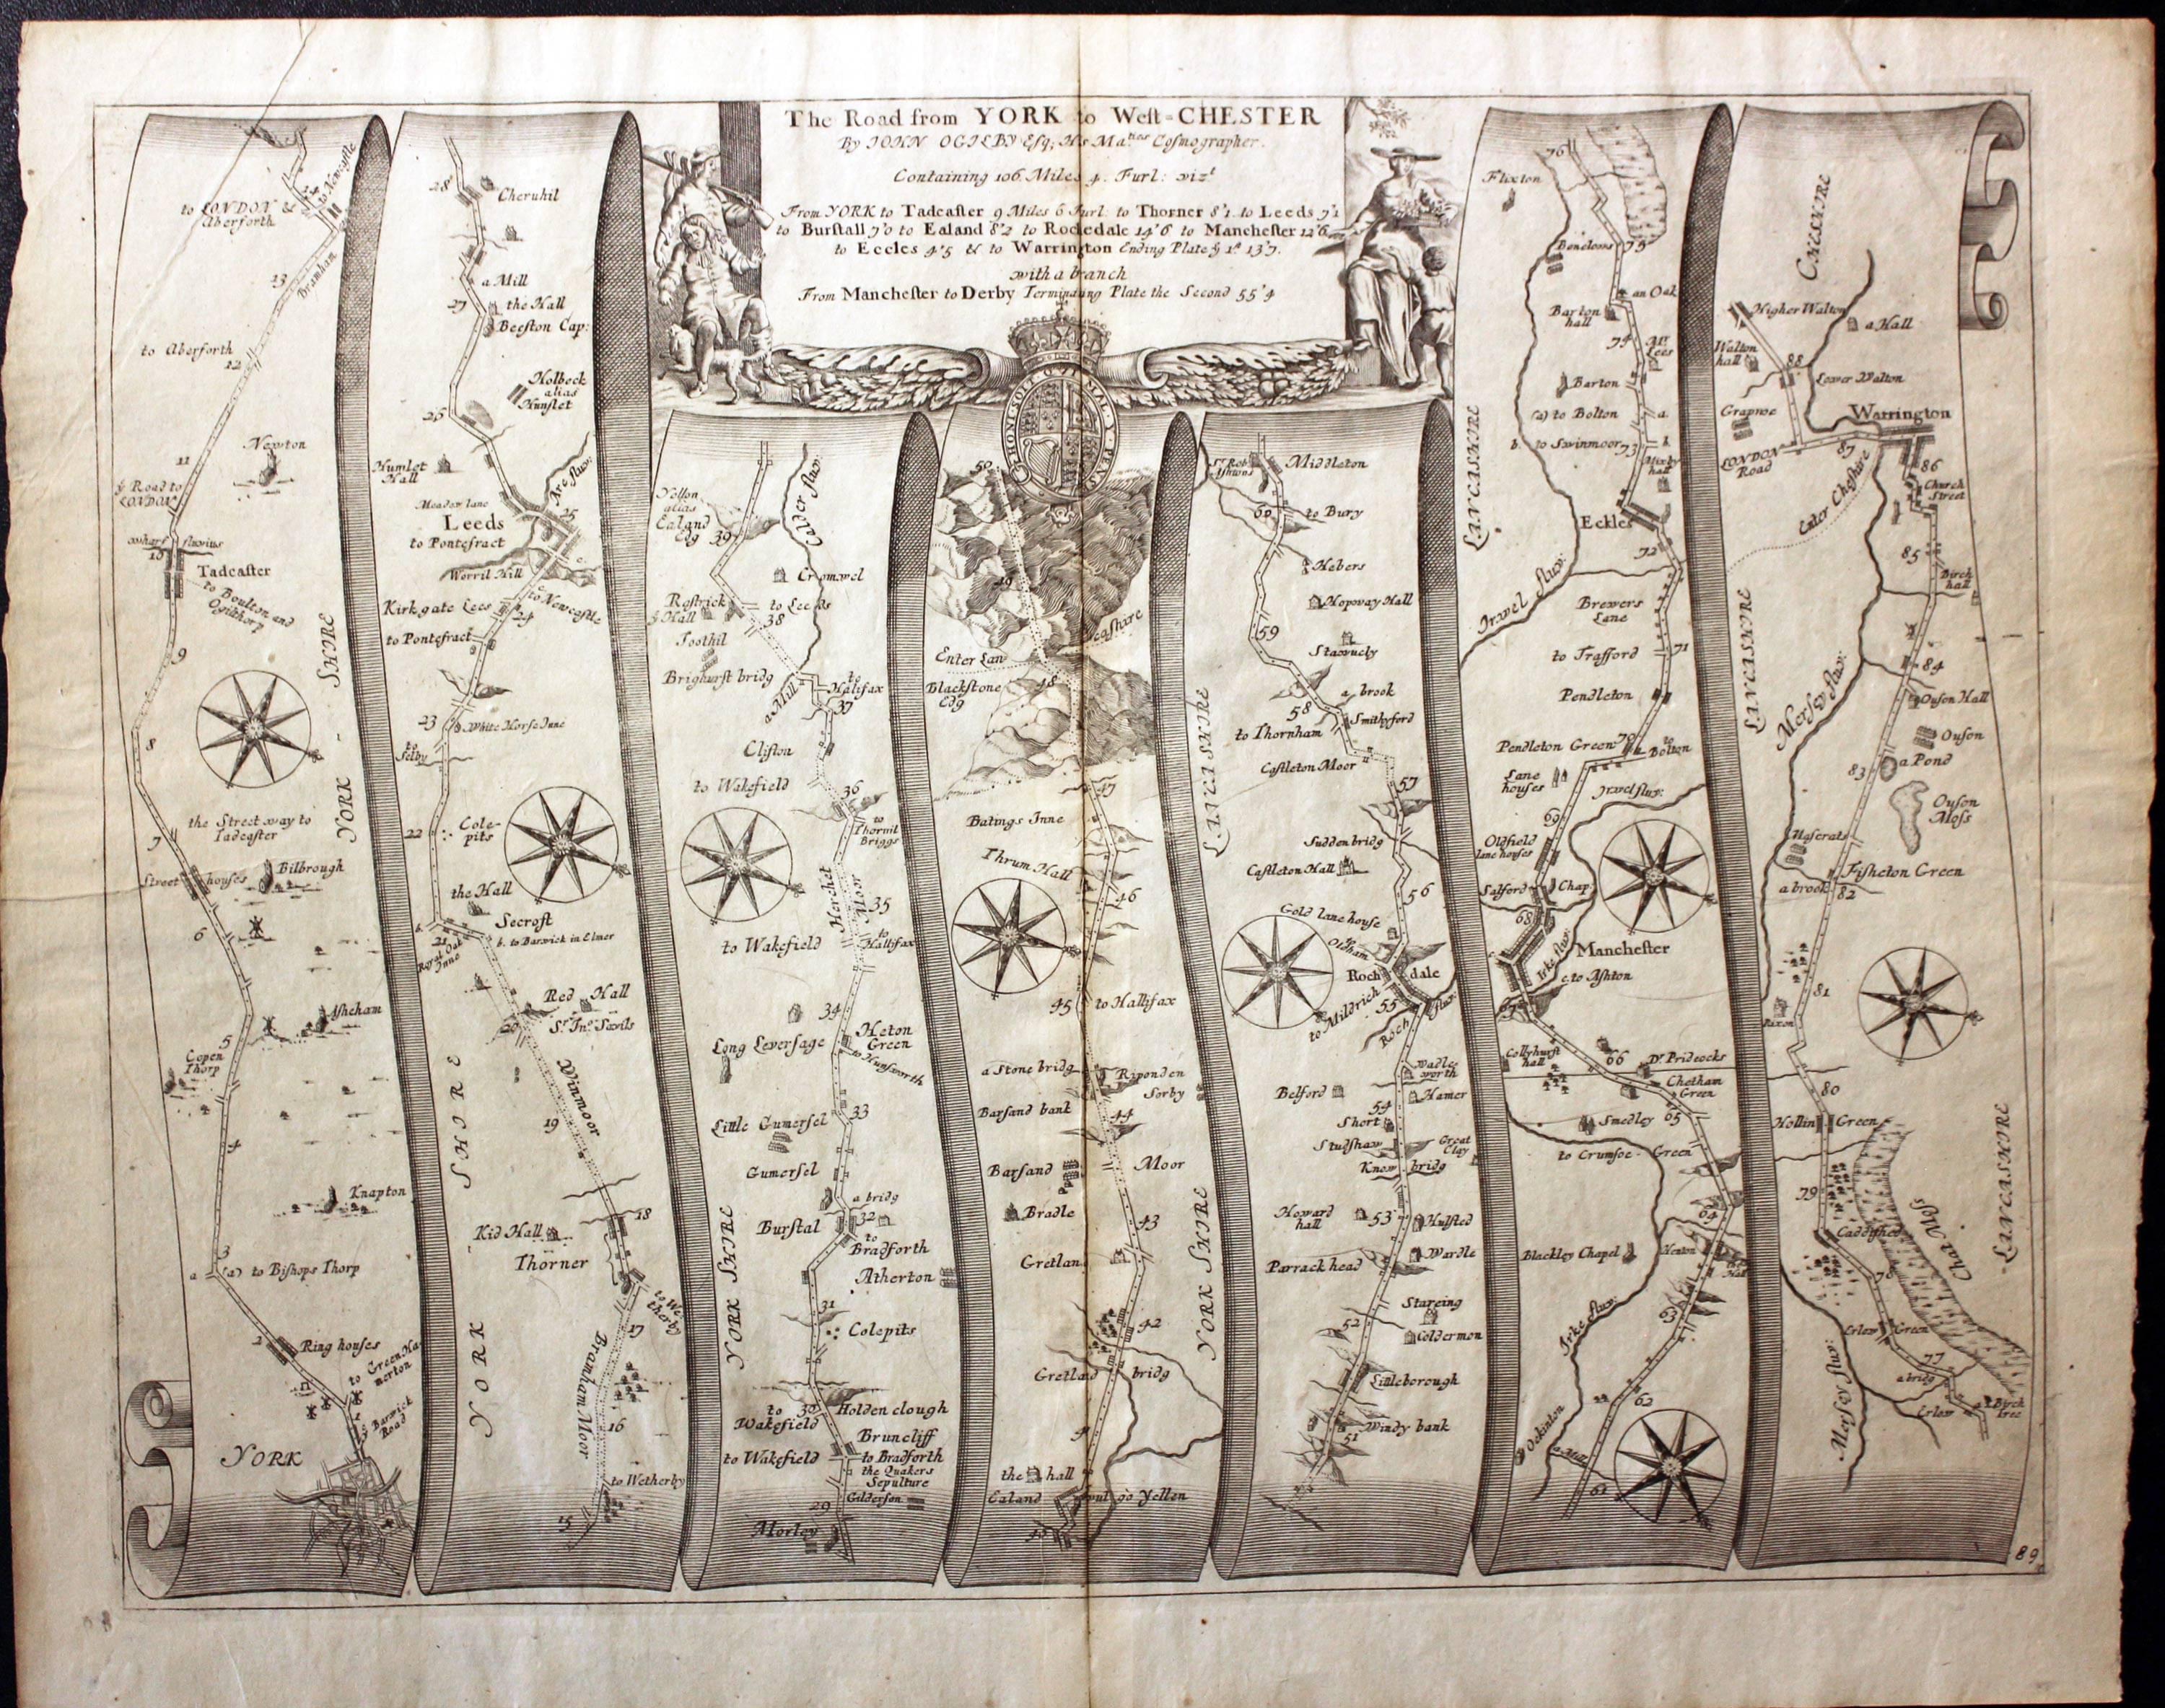 The Road from YORK to West=CHESTER
By JOHN OGILBY Esqr, His Maties Cosmographer.
Containing 106 Miles 4. Furl: vizt
From YORK to Tadcaster 9 Miles 6 Furl. to Thorner 8'1. to Leeds 7'1
to Burstall 7'0 to Ealand 8'2 to Rochedale 14'6 to Manchester 12'6
to Eccles 4'5 & to Warrington Ending Plate ye 1st 13'7.
with a branch
From Manchester to Derby Terminating Plate the Second 55'4
HONI SOIT QUI MAL Y PENSE
to Newcastle
to LONDON &
Aberforth
Bramham
13
to Aberforth
12
Newton
11
ye Road to
LONDON
wharf fluvius
10
Tadcaster
to Boulton and
Oglethorp
9
YORK - SHIRE
8
the Street way to
Tadcaster
7
Street houses
Bilbrough
6
Askham
5
Copen
Thorp
4
Knapton
3
a
(a) to Bishops Thorp
2
Ring houses
to Green Ha
merton
1
ye Barwick
Road
YORK
28
Cheruhil
a Mill
27
the Hall
Beeston Cap:
Holbeck
alias
Hunslet
26
Humlet
Hall
Are fluv:
Meadow lane
25
Leeds
to Pontefract
Worril Hill
c
Kirkgate Lees
to Newcastle
24
to Pontefract
23
White Horse Inne
to
Selby
22
Cole-
pits
the Hall
Secroft
b. to Barwick in Elmer
21
Royal Oak
Inne
Red Hall
Sr. Jno. Savils
20
Winmoor
19
YORK SHIRE
18
Kid Hall
Thorner
to We
therby
17
Bramham Moor
16
to Wetherby
15
Yellon
alias
Ealand
Edg
39
Calder fluv:
Cromwel
Rastrick
ye Hall
to Leeds
38
Toothil
Brighurst bridg
a Mill
to
Halifax
37
Clifton
to Wakefield
36
to
Thornil
Briggs
Herchet
Moor
35
to Wakefield
to
Hallifax
34
Heton
Green
Long Leversage
to Hunsworth
33
Little Gumersel
Gumersel
a bridg
Burstal
32
to
Bradforth
Atherton
YORK SHIRE
31
Colepits
to
Wakefield
30
Holden clough
Bruncliff
to Wakefield
to Bradforth
the Quakers
Sepulture
29
Gilderson
Morley
50
49
Enter Lan
cashire
Blackstone
Edg
48
47
Batings Inne
Thrum Hall
46
45
to Hallifax
a Stone bridg
Riponden
Sorby
Barsand bank
44
Barsand
Moor
Bradle
43
Gretland
42
Gretland bridg
YORK SHIRE
the hall
Ealand vulgo Yellen
40
Sr Rob
Ashtons
Middleton
60
to Bury
Hebers
Hopway Hall
59
Stanucly
a brook
58
Smithyford
to Thornham
Castleton Moor
57
LANCASHIRE
Sudden bridg
Castleton Hall
56
Gold lane house
to
Oldham
Roch dale
55
to Mildrich
Roch fluv:
Wadles
worth
Belford
Hamer
54
Short
Studshaw
Great
Clay
Know bridg
Howard
hall
53
Hulsted
Wardle
Parrack head
Stareing
52
Coldermon
Littleborough
Windy bank
51
76
Flixton
Benclows
75
an Oak
Barton
hall
74
Mr
Lees
Barton
(a) to Bolton
a.
b. to Swinmoor
b.
73
LANCASHIRE
Eckles
72
Irwel fluv:
Brewers
Lane
to Trafford
71
Pendleton
Pendleton Green
70
to
Bolton
Lane
houses
Irwel fluv:
69
Oldfield
lane houses
Salford
Chap
68
Irke fluv:
Manchester
c. to Ashton
67
Collyhurst
hall
66
Dr Prideocks
Chetham
Green
Smedley
65
to Crumsoe - Green
64
Blackley Chapel
Irke fluv:
63
62
Ockinton
a Mill
61
CHESHIRE
Higher Walton
a Hall
Walton
hall
88
Lower Walton
Grapnoe
Warrington
LONDON
Road
87
86
Church
Street
Enter Cheshire
85
Birch
hall
LANCASHIRE
Mersey fluv:
84
Ouson Hall
Ouson
a Pond
83
Ouson
Moss
Naserats
Fisheton Green
a brook
82
81
80
Hollin Green
79
Chat Moss
Caddished
78
LANCASHIRE
Erlow Green
77
a bridg
Mersey fluv:
Erlow
a Birch
tree
89